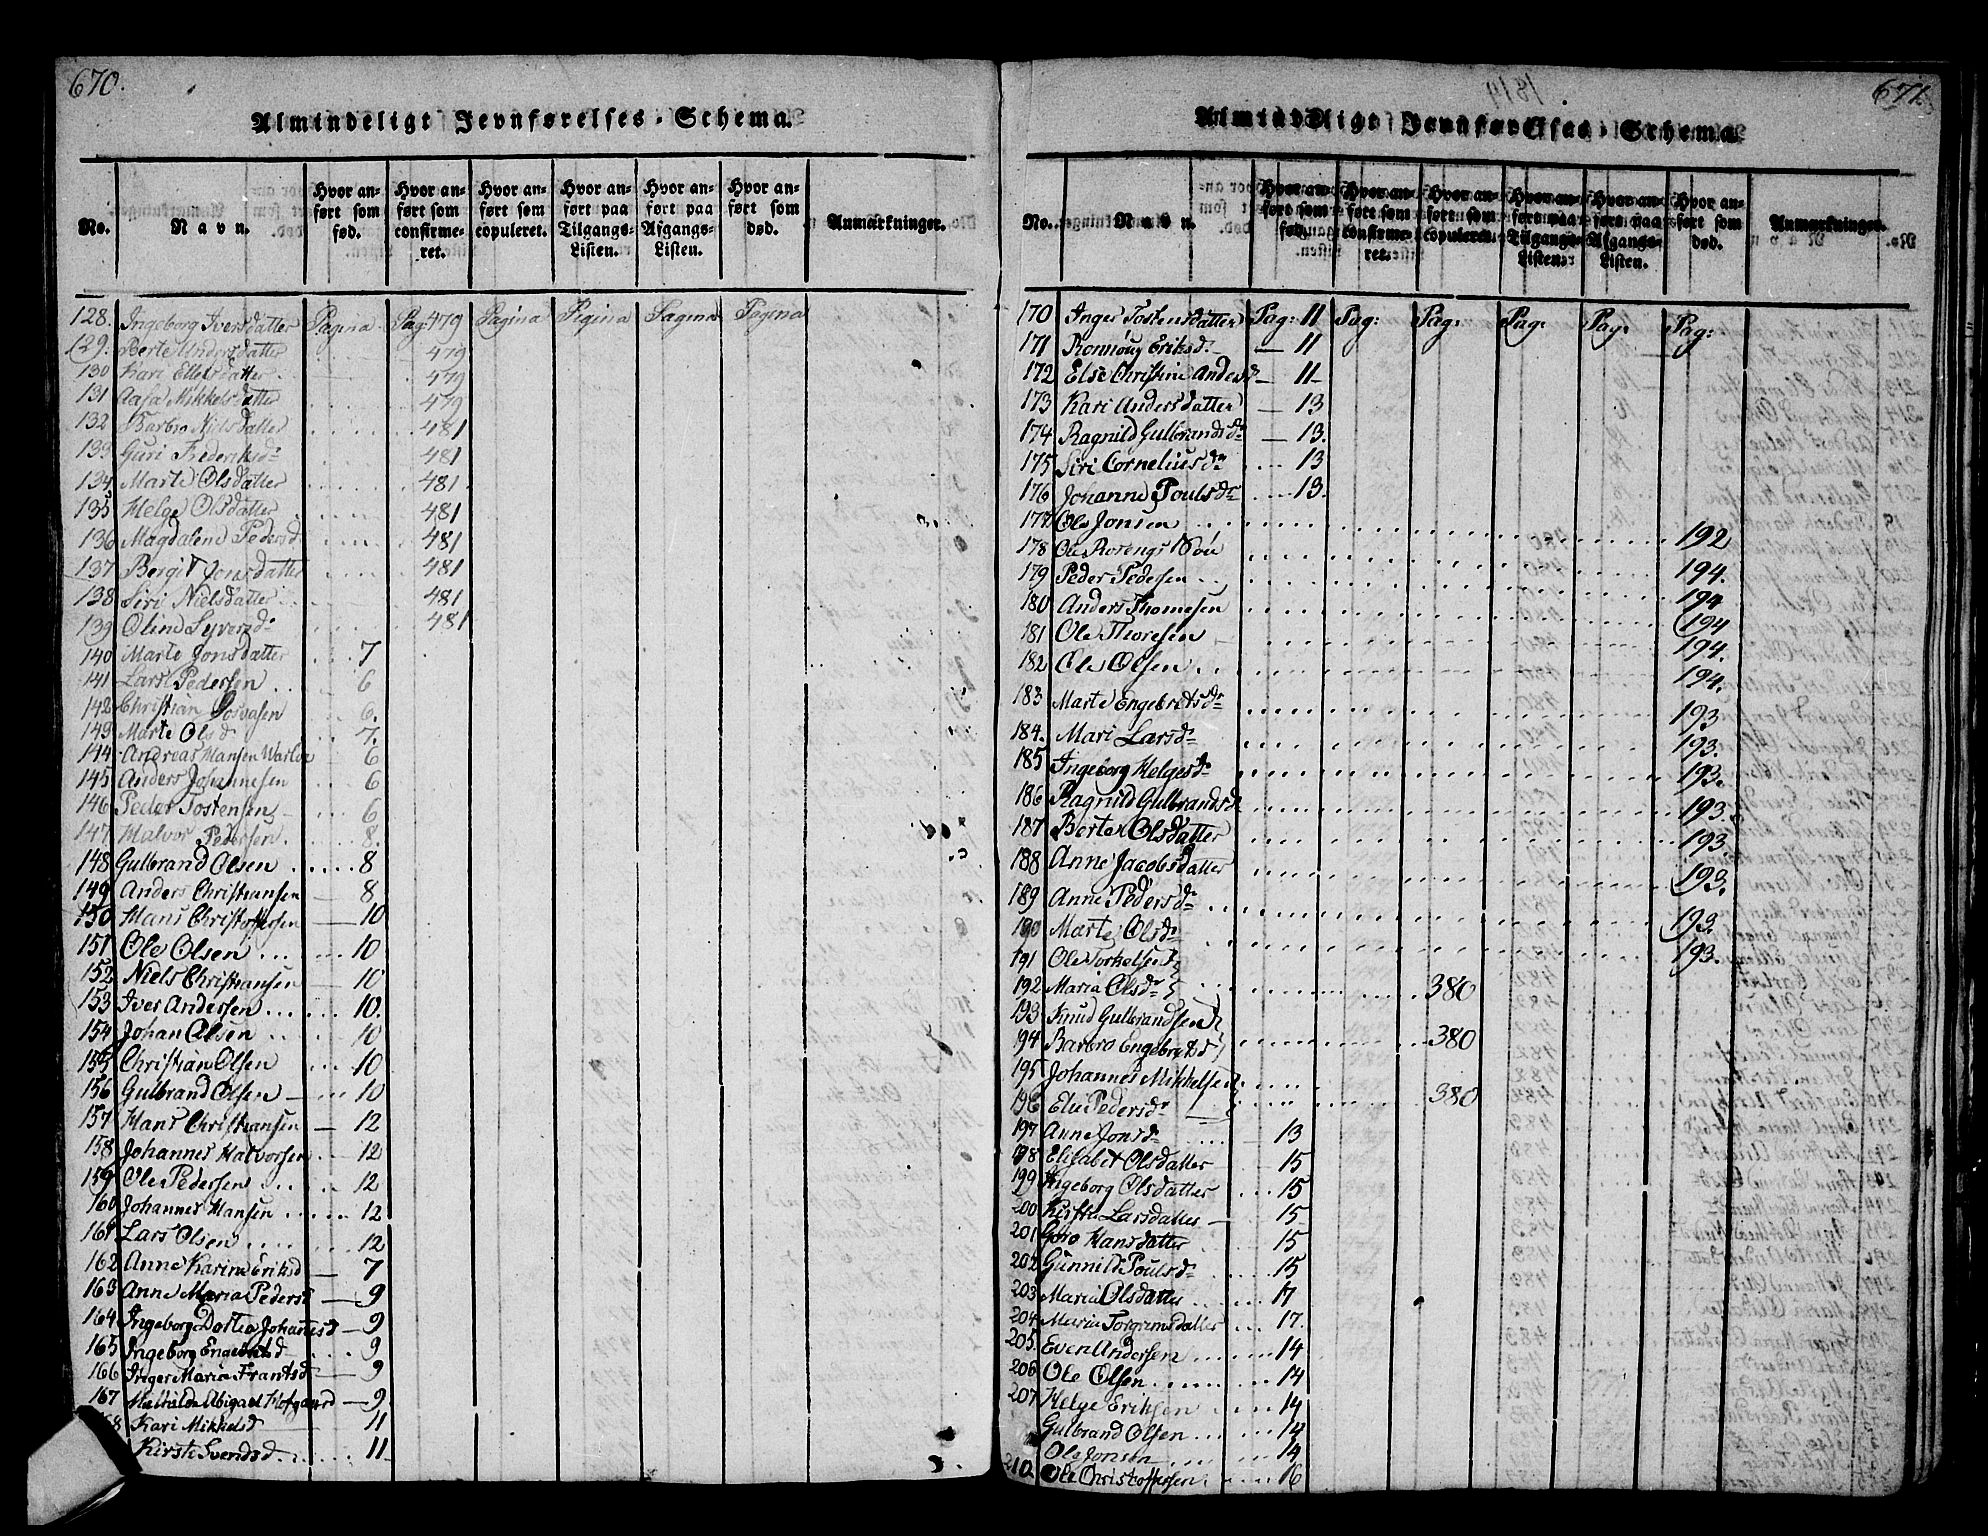 670.
Almindeligt Jevnførelses-Schema.
No.
Navn.
Hvor an-
ført som
fød.
Hvor an-
ført som
confirme-
ret.
Hvor an-
ført som
copuleret.
Hvor an-
ført paa
Tilgangs-
Listen.
Hvor an-
ført paa
Afgangs-
Listen.
Hvor an-
ført som
død.
Anmærkninger.
128. Ingeborg Iversdatter Pagina Pag: 479 Pagina Pagina Pagina Pagina
129. Berte Andersdatter 479
130 Kari Ellefsdatter 479
131 Aasa Mikkelsdatter 479
132 Barbro Nilsdatter 481
133 Guri Frederiksdr 481
134 Marte Olsdatter 481.
135 Helge Olsdatter 481
136 Magdalene Pedersd 481
137 Bergit Jonsdatter 481
138 Siri Nielsdatter 481
139 Oline Syversdr 481
140 Marte Jonsdatter 7
141 Lars Pedersen 6
142 Christian 6.
143 Marte Olsd 7.
144 Andreas Hansen 6
145 Anders Johannesen 6
146 Peder Tostensen 6
147 Halvor Pedersen 8.
148 Gulbrand Olsen 8
149 Anders Christiansen 8
150 Hans Christoffersen 10
151 Ole Olsen 10
152 Niels Christiansen 10
153 Iver Andersen 10.
154 Johan Olsen 10
155 Christian Olsen 10
156 Gulbrand Olsen 10
157 Hans Christiansen 12
158 Johannes Halvorsen 12
159 Ole Pedersen 12
160 Johannes Hansen 12
161 Lars Olsen 12
162 Anne Karine Eriksd 7
163 Anne Maria Pedersd 9
164 Ingeborg Dortea Johannesd 9
165 Ingeborg Engebretsd 9
166 Inger Maria Frantsd 9
167 Mathilde Abigael Hofgaard 9
68 Kari Mikkelsd 11
Kirste Svendsd 11
671.
1819
Almindeligt Jevnførelses-Schema.
No.
Navn.
Hvor an-
ført som
fød.
Hvor an-
ført som
confirme-
ret.
Hvor an-
ført som
copuleret.
Hvor an-
ført paa
Tilgangs-
Listen.
Hvor an-
ført paa
Afgangs-
Listen.
Hvor an-
ført som
død.
Anmærkninger.
170 Inger Tostensdatter Pag: 11 Pag: Pag: Pag: Pag: Pag:
171 Ronnoug Eriksd. 11
172 Else Christine Andersd 11
173 Kari Andersdatter 13
174 Ragnild Gulbrandsdr 13.
175 Siri Corneliusdr 13
176 Johanne Poulsdr 13.
177 Ole Jonsen 192
178 Ole Rosengs Søn 194.
179 Peder Pedersen 194
180 Anders Thomesen 194
181 Ole Thoresen 194.
182 Ole Olsen 194.
183 Marte Engebretsdr 193
184. Mari Larsdr 193.
185 Ingeborg Helgesdr 193.
186 Ragnild Gulbrandsdr 193.
187 Berte Olsdatter 193
188 Anne Jacobsdatter 193.
189 Anne Pedersdr 193.
190 Marte Olsdr 193.
191 Ole Torkelsen
192 Maria Olsdr 380
193 Knud Gulbrandsen
194 Barbro Engebretsd 380
195 Johannes Mikkelsen
196 Eli Pedersdr 380
197 Anne Jonsdr 13
198 Elisabet Olsdatter 15
199 Ingeborg Olsdatter 15
200 Kirstie Larsdatter 15
201 Goro Hansdatter 15
202 Gunnild Poulsdr 15
203 Maria Olsdatter 17
204 Maria Torgrimsdatter 17.
205. Even Andersen 14
206 Ole Olsen 14
207 Helge Eriksen 14
Gulbrand Olsen 14
Ole Jonsen 14
210. Ole Christoffersen 16